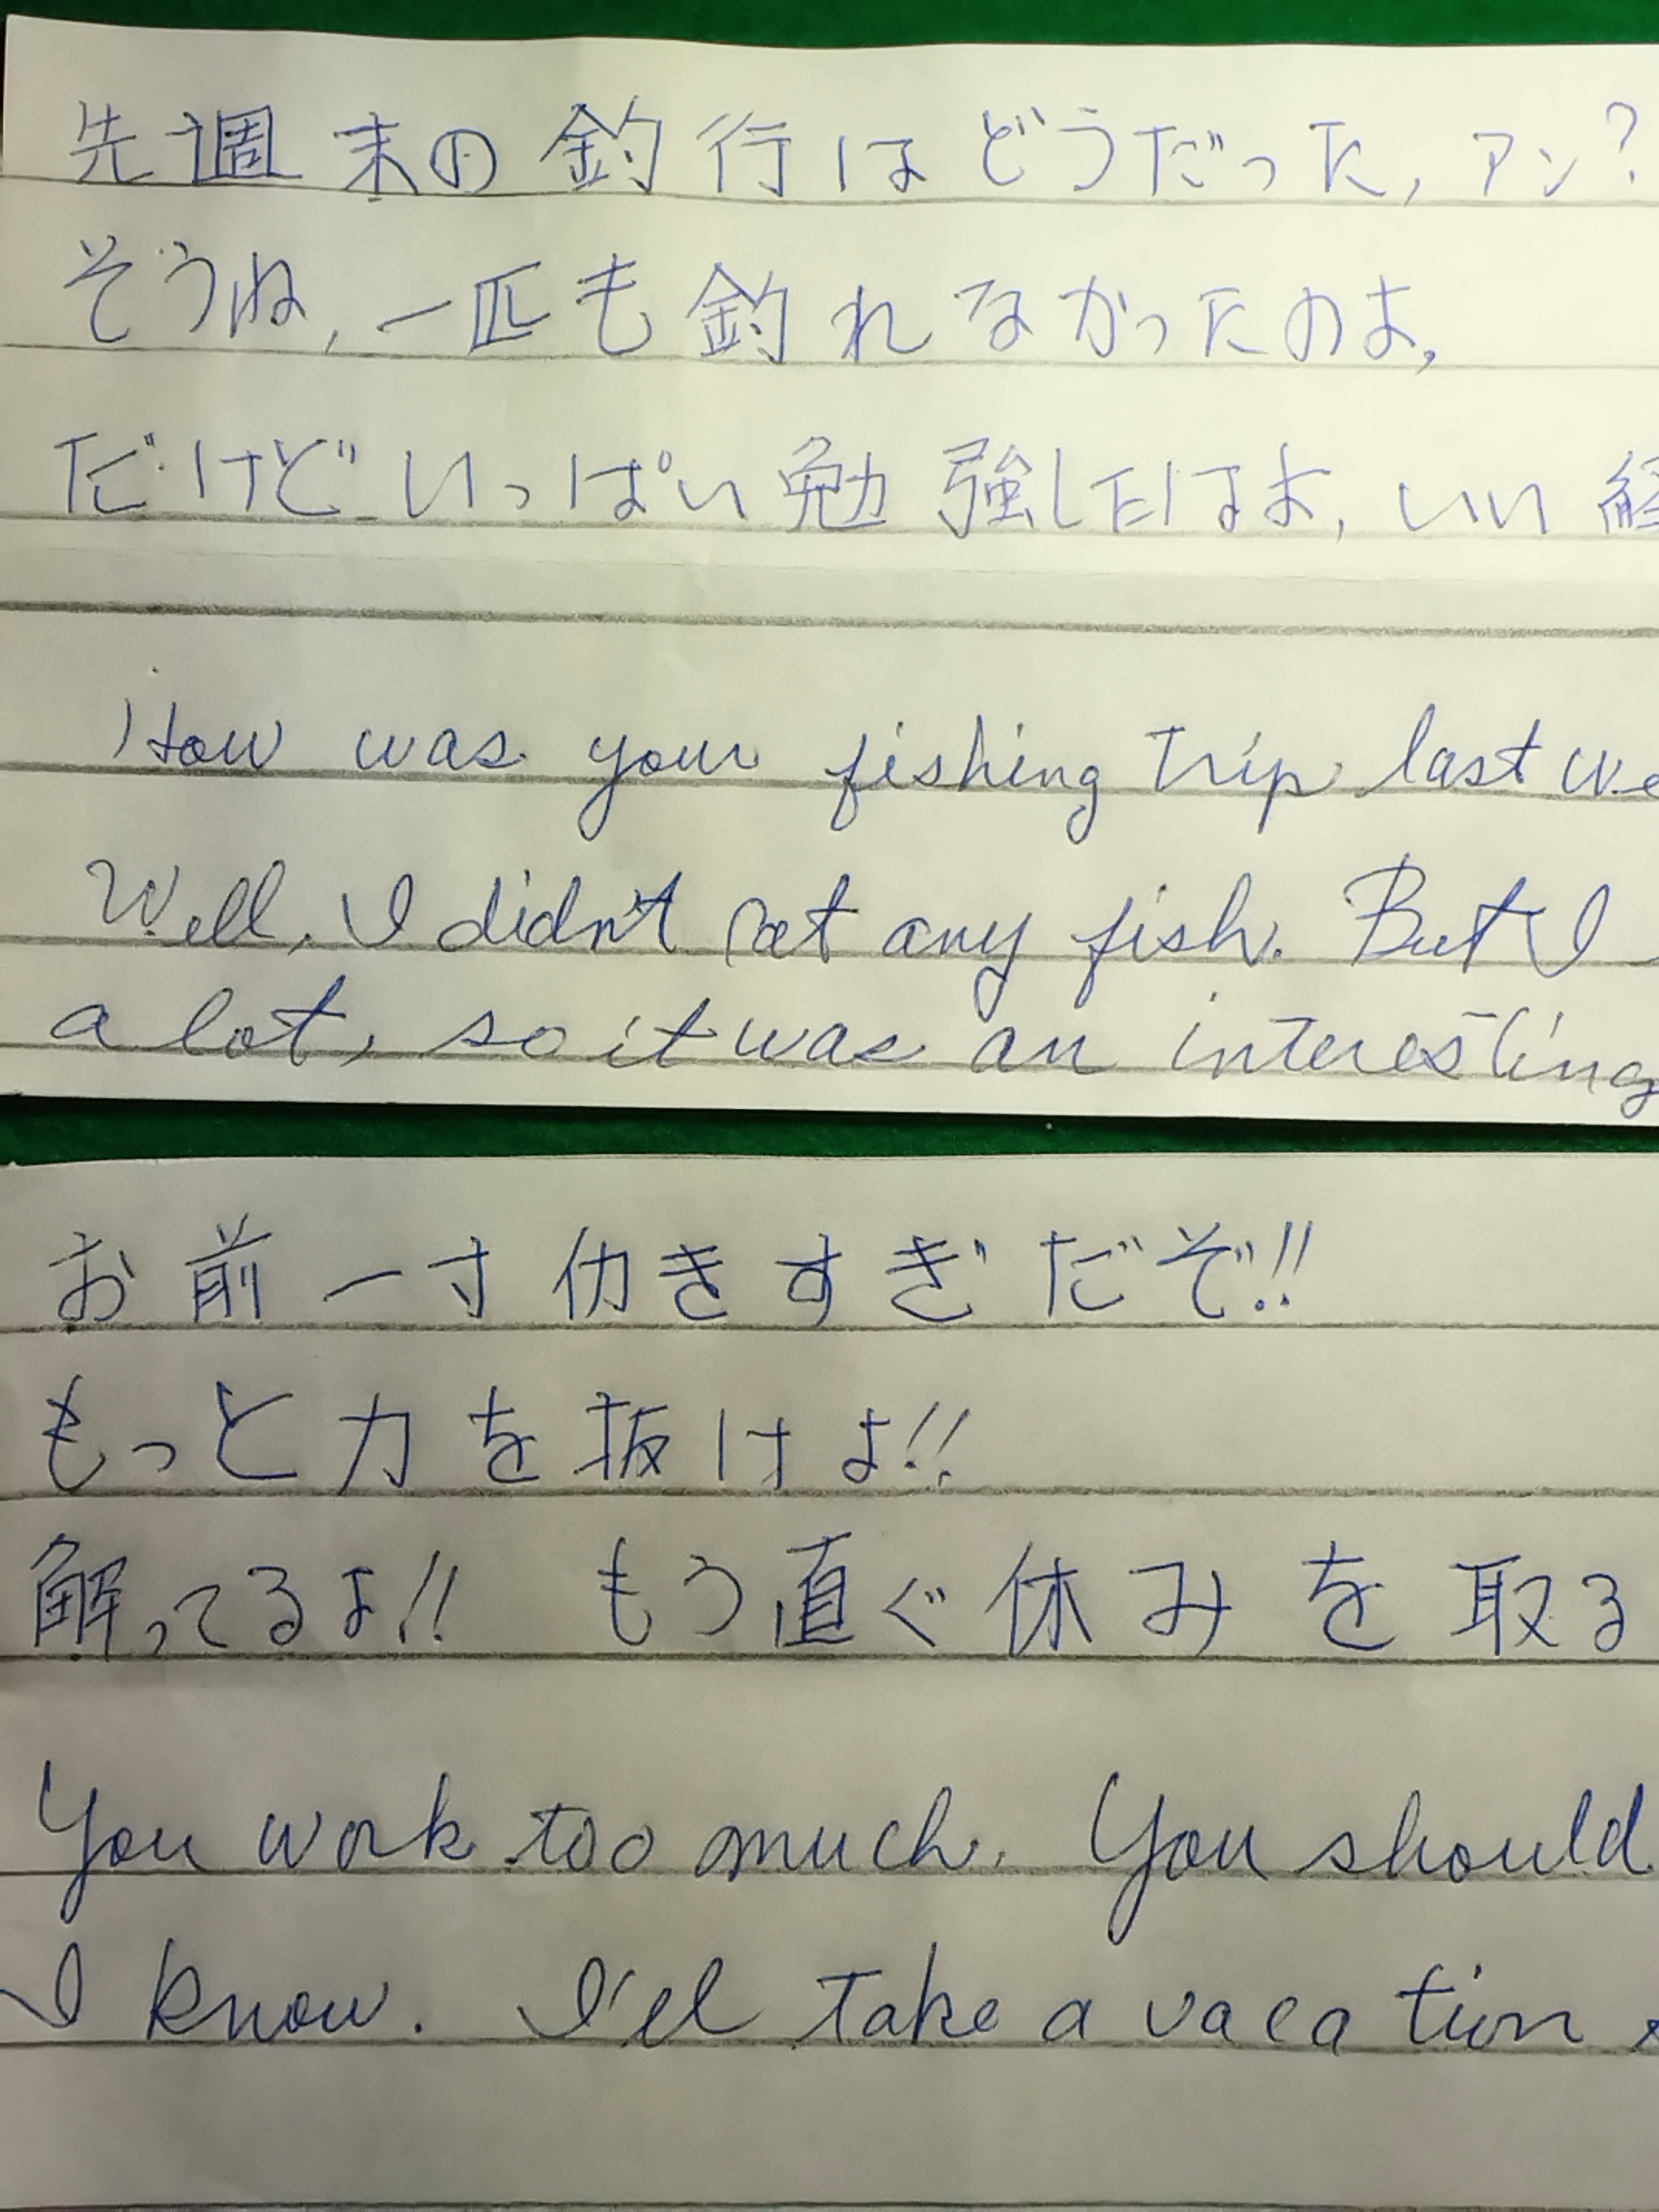 先週末の釣行はどうだった, アン?
そうね, 一匹も釣れなかったのよ,
だけどいっぱい勉強したはよ, いい経
How was your fishing trip last we
Well, I didn't Cat any fish. But I
a lot, so it was an interesting
お前一寸仂きすぎだぞ!!
もっと力を抜けよ!!
解ってるよ!! もう直ぐ休みを取る
You work too much. You should
I know. I'll take a vacation